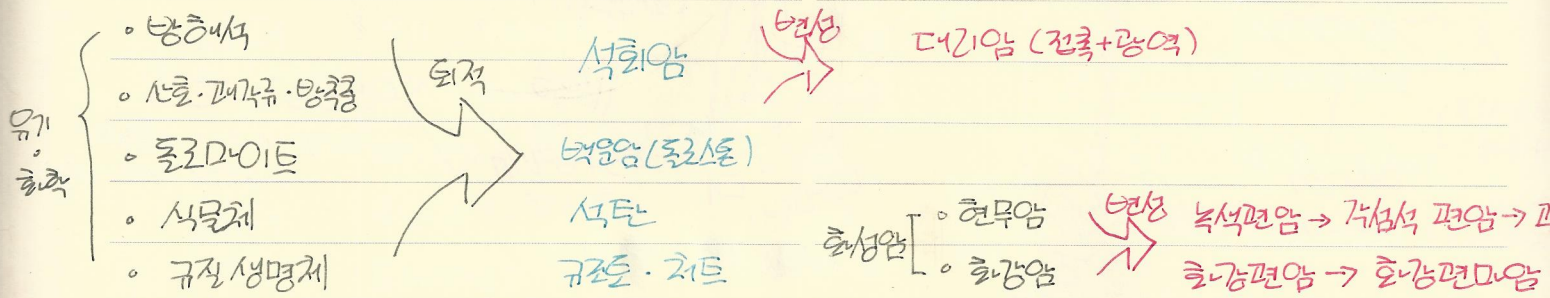 유기·화학
• 방해석
• 산호·패각류·방추충
• 돌로마이트
• 식물체
• 규질 생명체
퇴적
석회암
백운암(돌로스톤)
석탄
규조토·처트
변성
대리암 (접촉+광역)
화성암
• 현무암
• 화강암
변성
녹색편암 → 각섬석 편암 →
화강편암 → 화강편마암